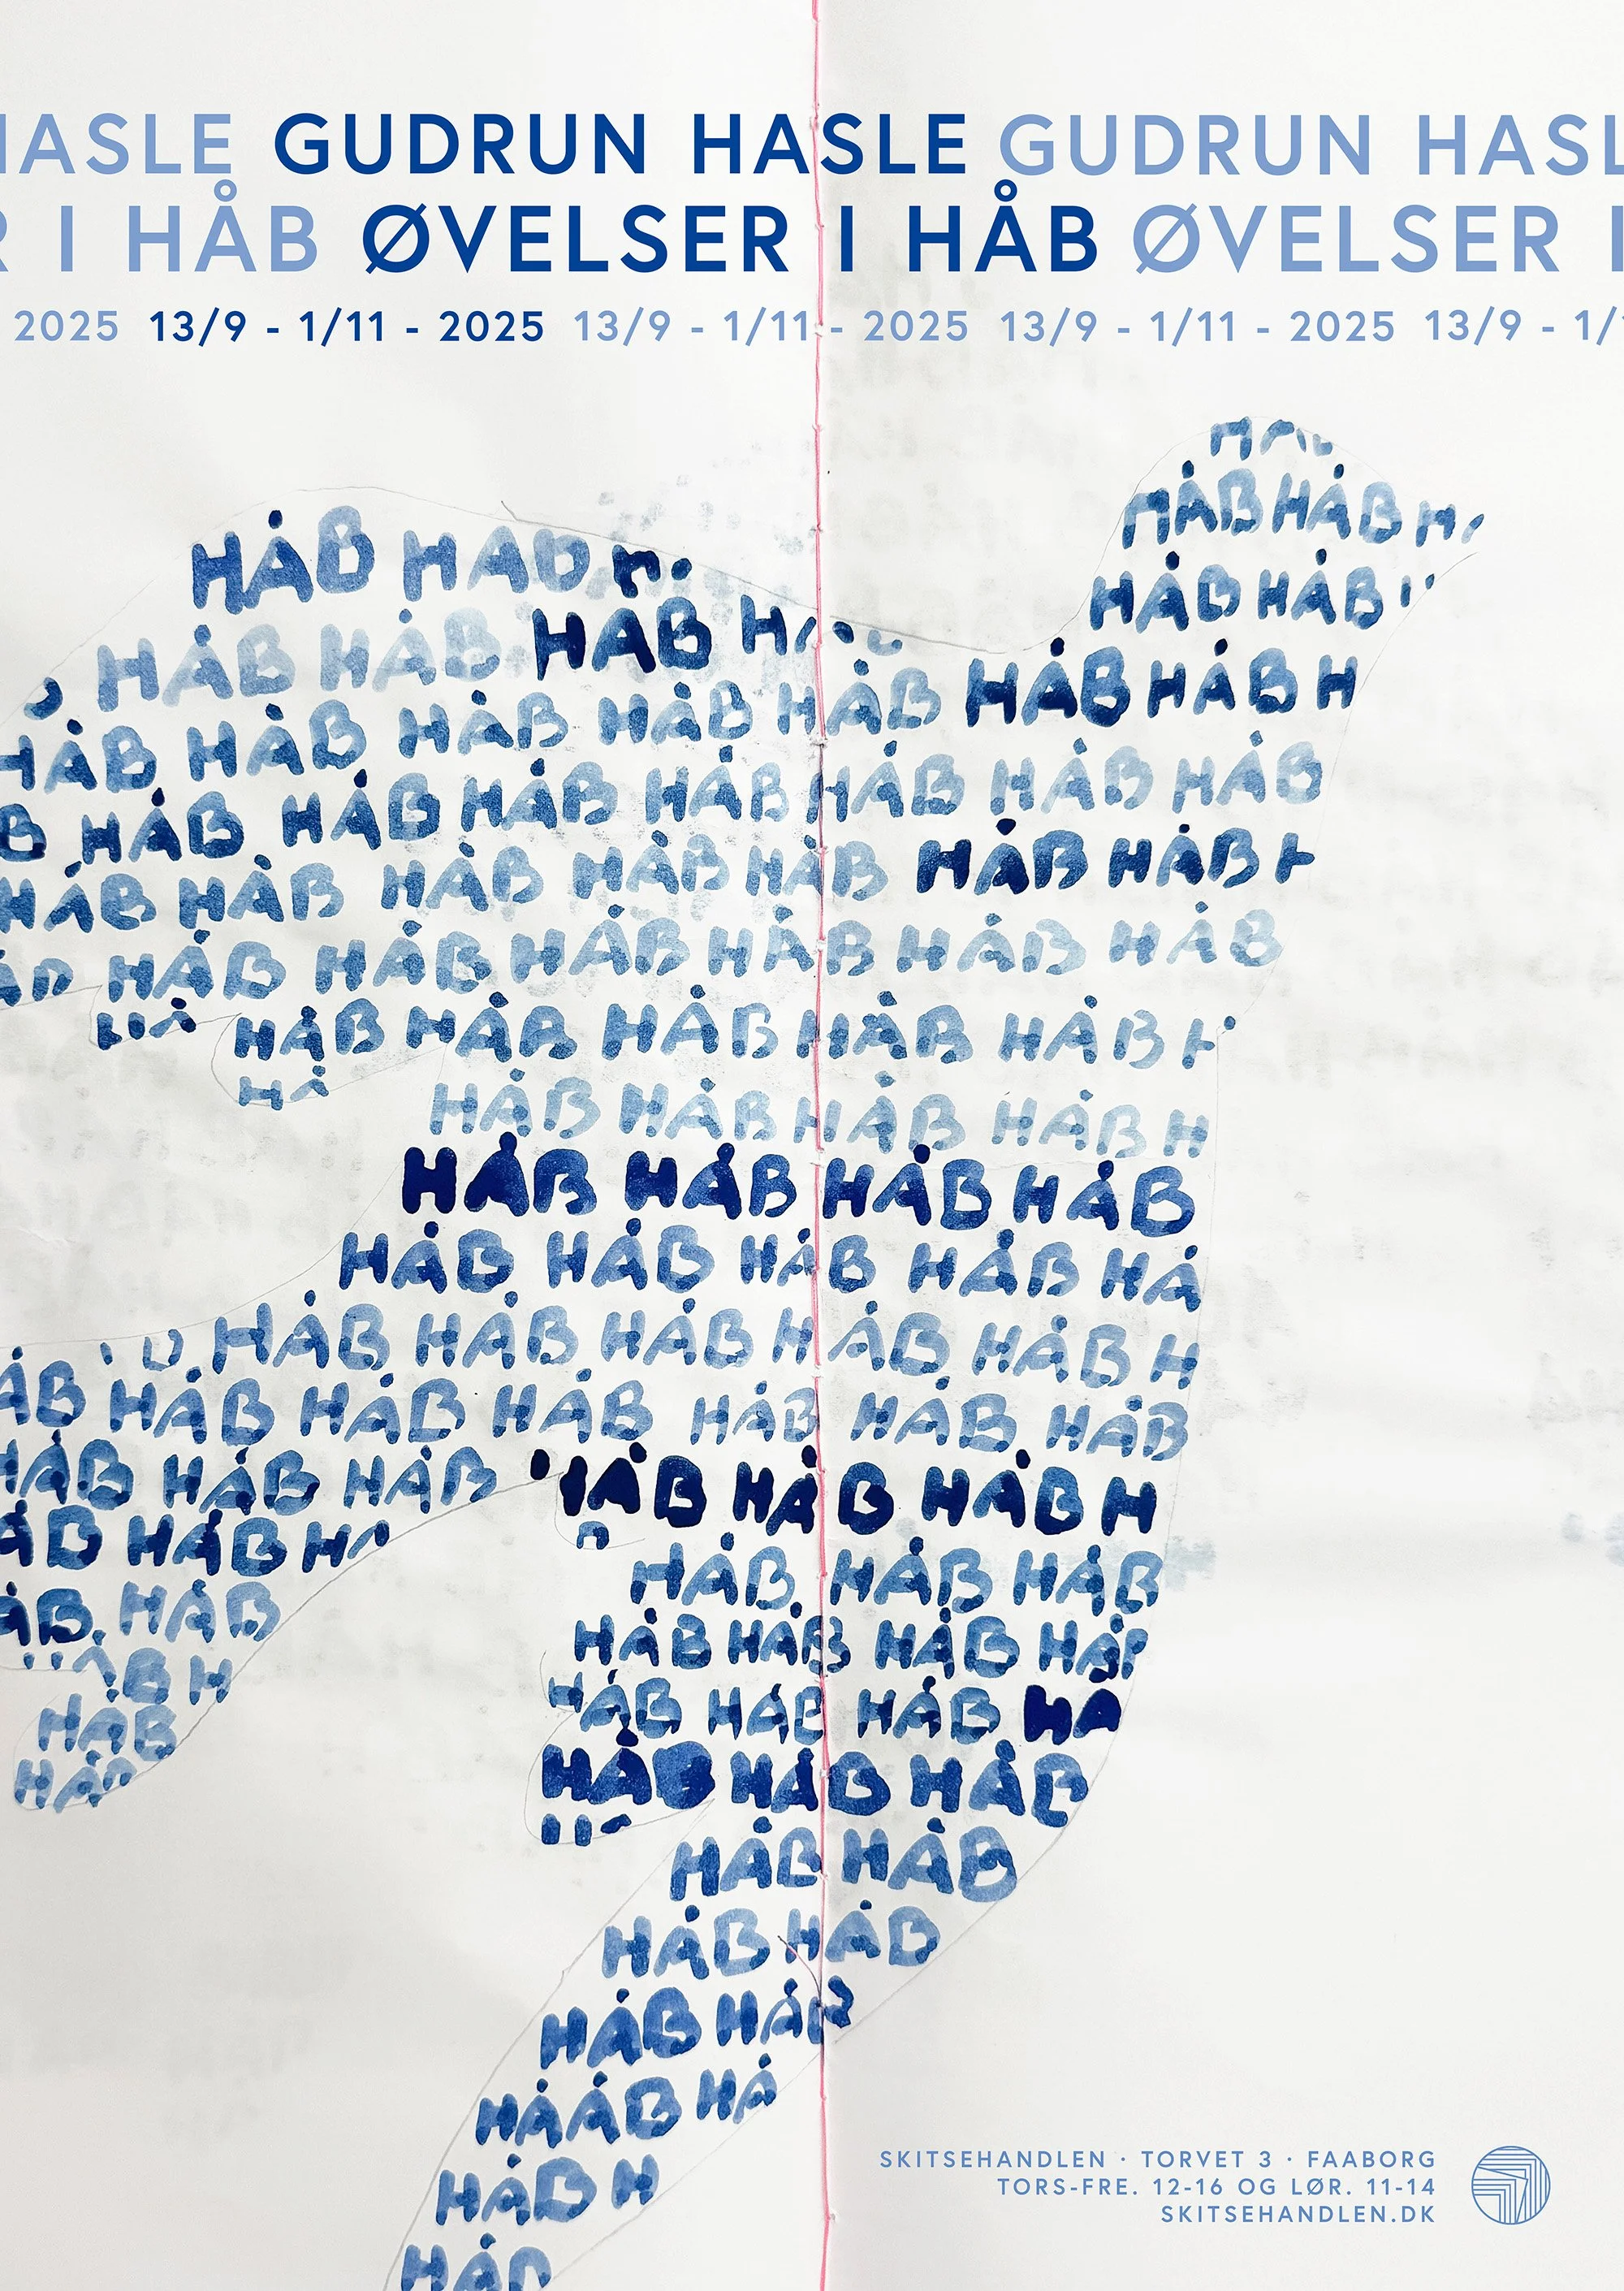 HASLE GUDRUN HASLE GUDRUN HASL
R I HÅB ØVELSER I HÅB ØVELSER I
2025 13/9 - 1/11 - 2025 13/9 - 1/11 - 2025 13/9 - 1/11 - 2025 13/9 - 1/1
HÅB HÅB
HÅB HÅB
HÅB HÅB HÅB
HÅB HÅB H
HÅB HÅB HÅB HÅB HÅB
B HÅB HÅB HÅB HÅB HÅB HÅB HÅB
HÅB HÅB HÅB HÅB HÅB HÅB HÅB
HÅB HÅB HÅB HÅB HÅB HÅB
HÅB HÅB HÅB HÅB HÅB
HÅ
HÅB HÅB HÅB HÅB H
HÅB HÅB HÅB HÅB
HÅB HÅB HÅB HÅB HÅ
HÅB HÅB HÅB HÅB HÅB H
ÅB HÅB HÅB HÅB HÅB HÅB HÅB
HÅB HÅB HÅB HÅB HÅB HÅB H
ÅB HÅB H
HÅB HÅB HÅB
ÅB HÅB
HÅB HÅB HÅB HÅB
ÅB H
HÅB HÅB HÅB HÅ
HÅB
HÅB HÅB HÅB
HÅB
HÅB HÅB
HÅB HÅB
HÅB HÅB
HÅÅB HÅ
HÅB H
HÅB
SKITSEHANDLEN · TORVET 3 · FAABORG
TORS-FRE. 12-16 OG LØR. 11-14
SKITSEHANDLEN.DK